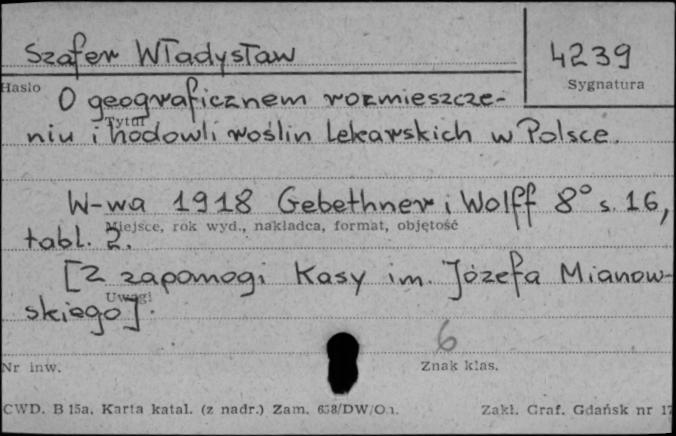 Szafer Władysław
4239
Hasło
Sygnatura
O geograficznem rozmieszcze-
Tytuł
niu i hodowli roślin lekarskich w Polsce.
W-wa 1918 Gebethner i Wolff 8° s. 16,
Miejsce, rok wyd., nakładca, format, objętość
tabl. 2.
[Z zapomogi Kasy im. Józefa Mianow-
Uwagi
skiego].
6
Nr inw.
Znak klas.
CWD. B 15a. Karta katal. (z nadr.) Zam. 658/DW/O.
Zakł. Graf. Gdańsk nr 17